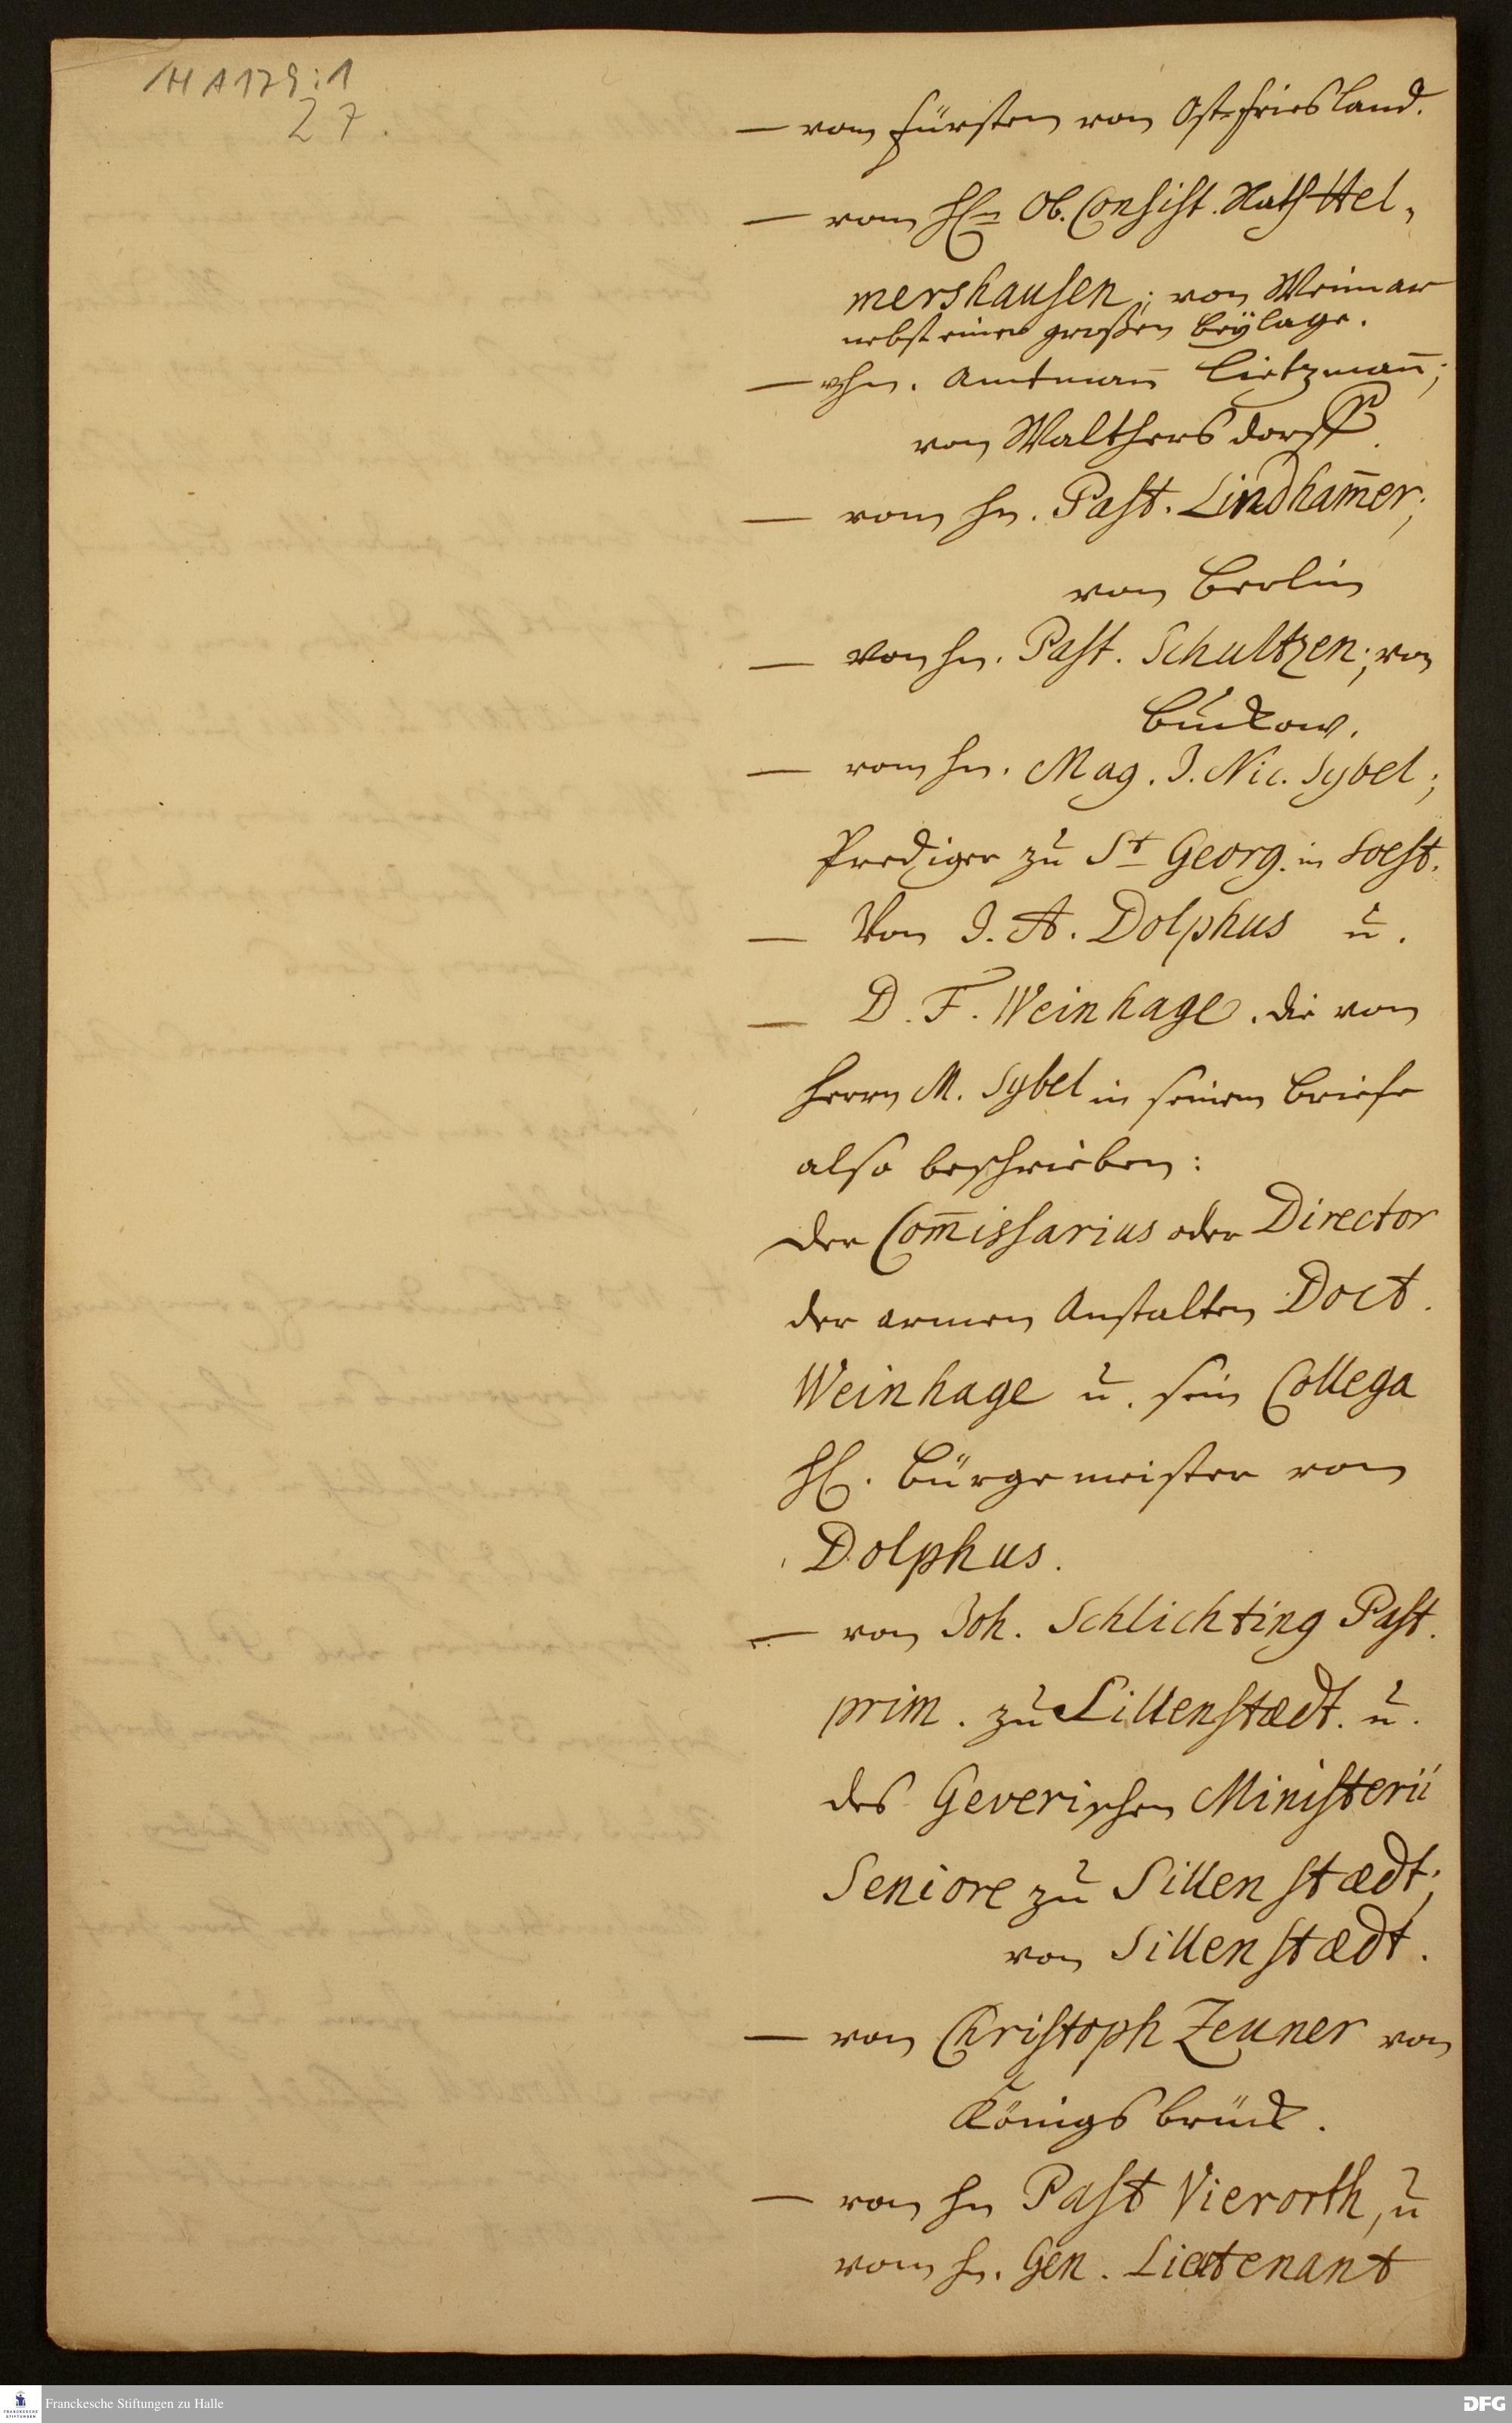 H A 179 : 1
27.
— vom Fürsten von Ost-Friesland.
— vom H. Ob. Consist. Rath Hel-
mershausen; von Weimar
nebst einer großen Beylage.
— v Hn. Amtman̄ Lietzman̄;
von Walthersdorff
— vom Hn. Past. Lindham̄er;
von Berlin
— von Hn. Past. Schultzen; von
Buckow.
— vom Hn. Mag. J. Nic. Sybel;
Prediger zu St Georg. in Soest.
— Von J. A. Dolphus u.
— D. F. Weinhage. die vom
Herrn M. Sybel in seinem Briefe
also beschrieben:
Der Com̄issarius oder Director
der armen Anstalten Doct.
Weinhage u. sein Collega
H. Bürgemeister von
Dolphus.
— von Joh. Schlichting Past.
prim. zu Sillenstædt. u.
des Geverischen Ministerii
Seniore zu Sillenstædt;
von Sillenstædt.
— von Christoph Zeuner von
Königsbrück.
— von Hn Past Vierorth, u
vom Hn. Gen. Lieutenant
Franckesche Stiftungen zu Halle
DFG